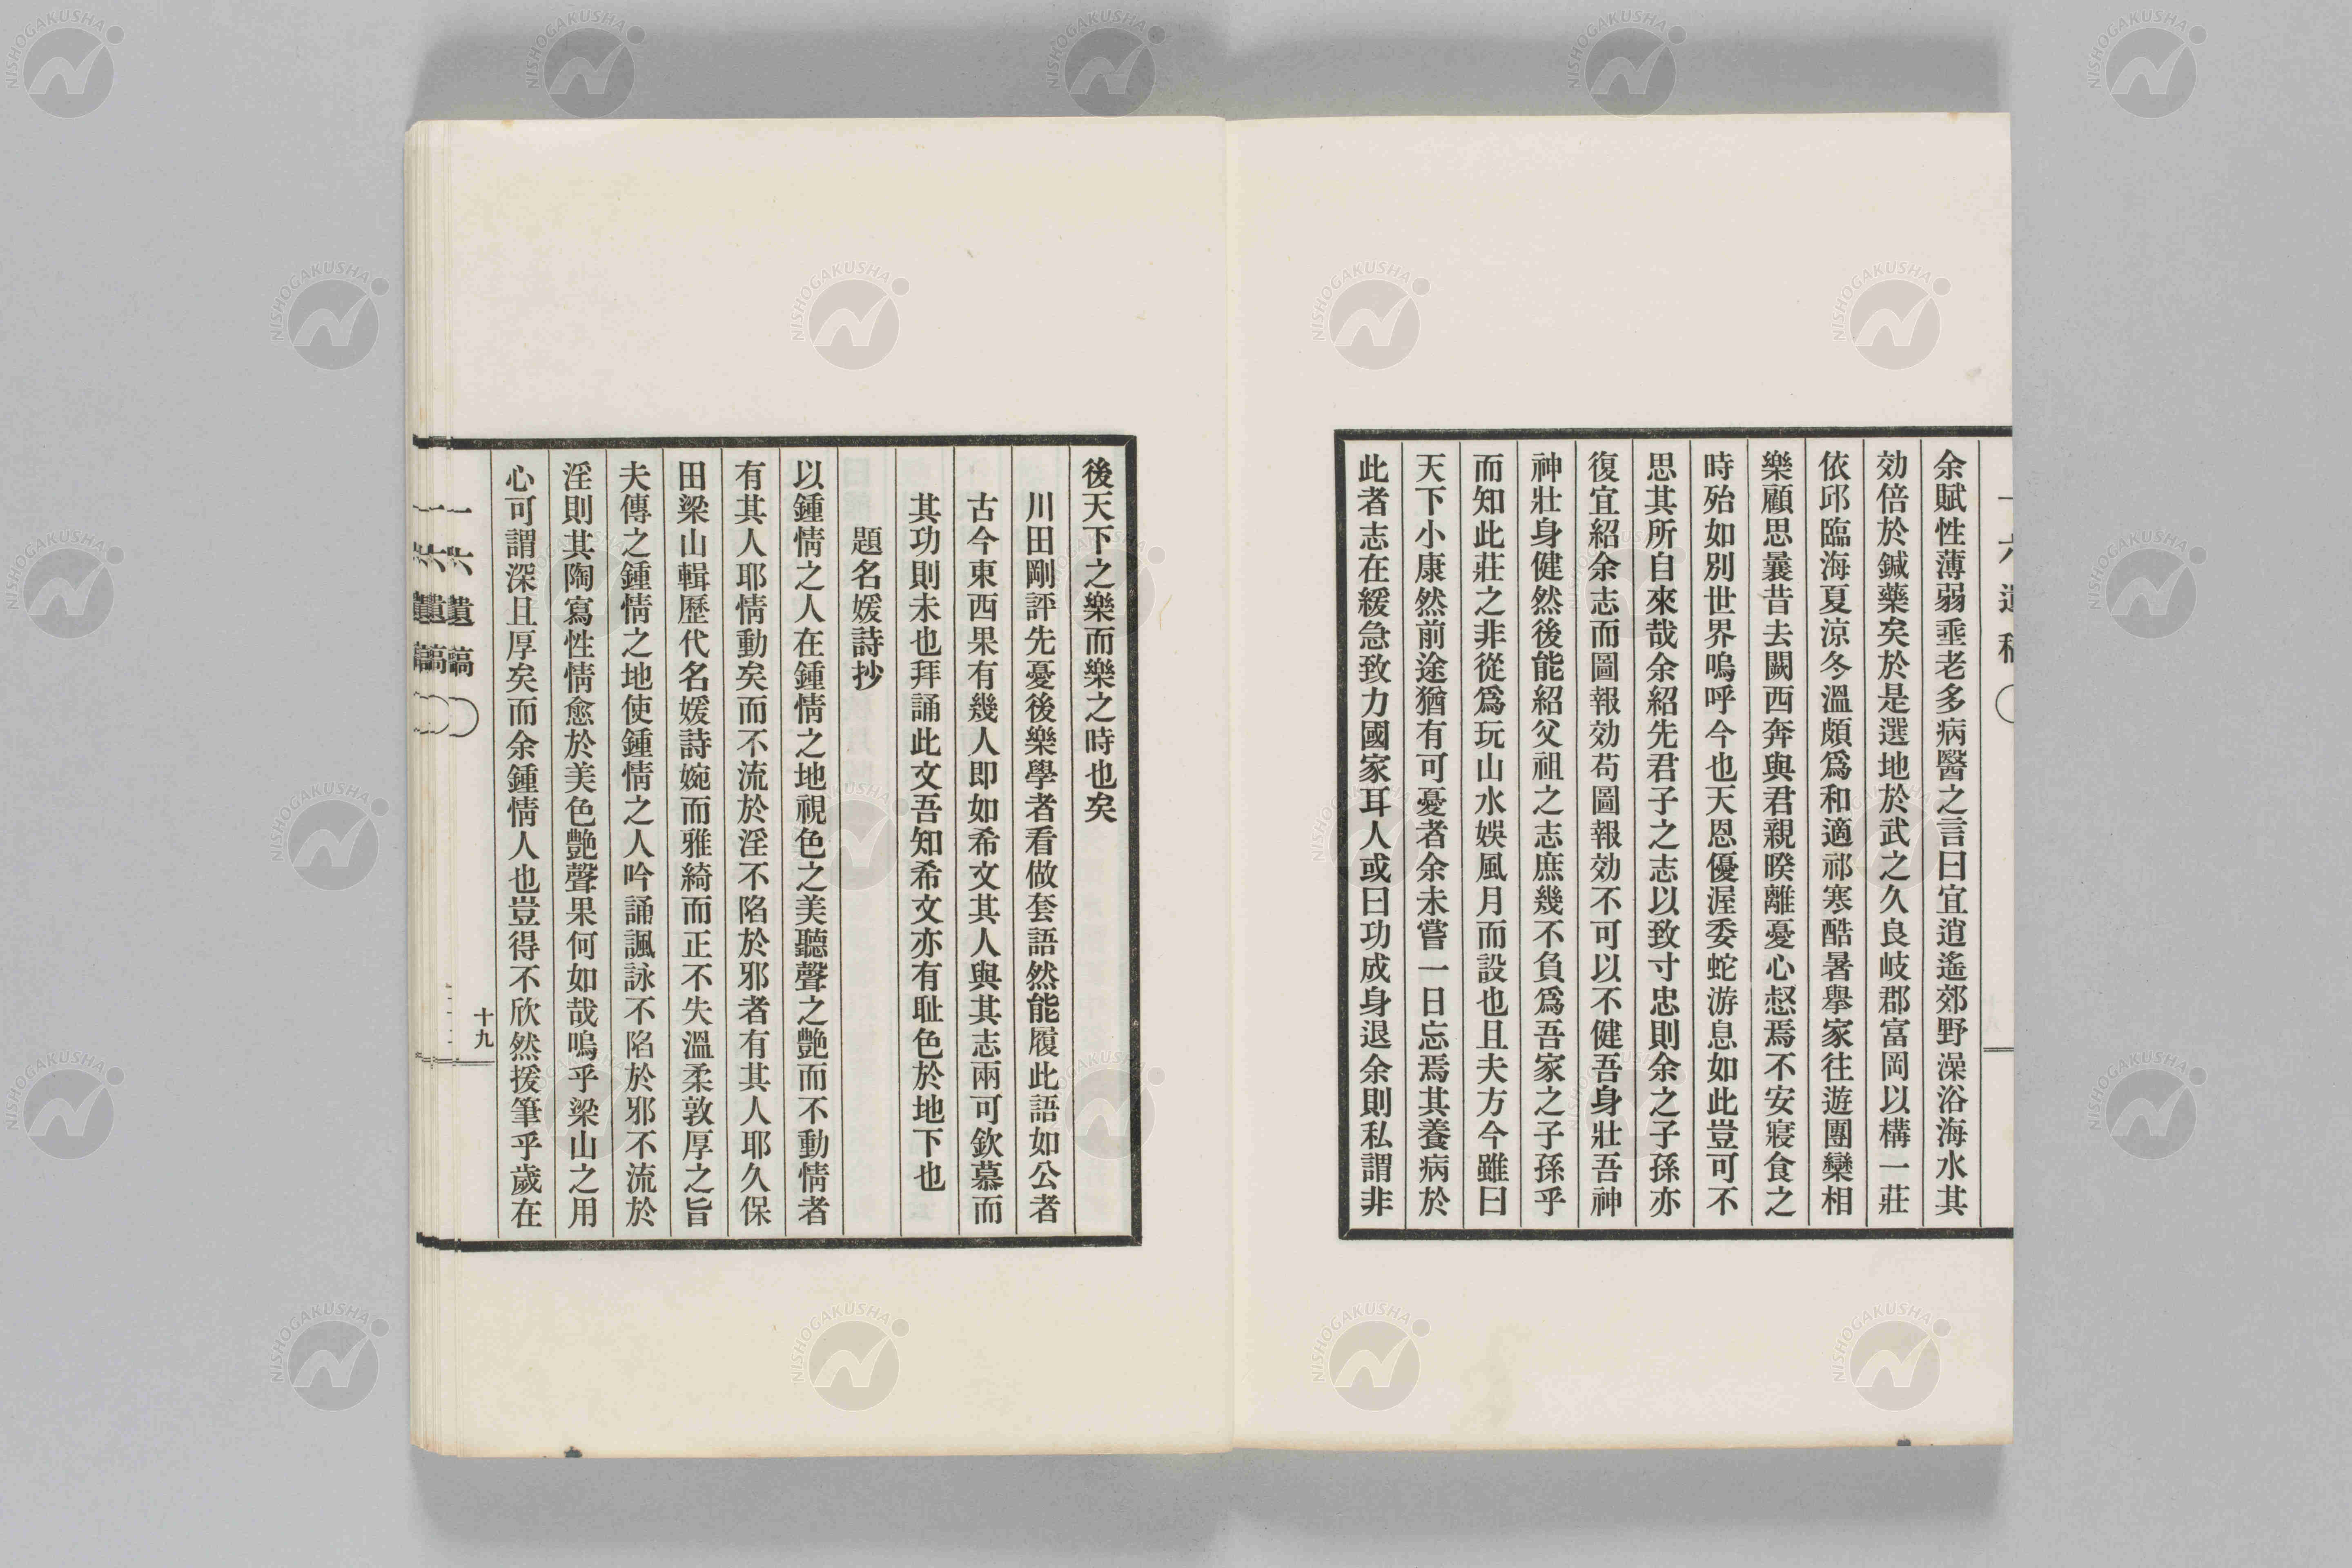 余賦性薄弱垂老多病醫之言曰宜逍遙郊野澡浴海水其
効倍於鍼藥矣於是選地於武之久良岐郡富岡以構一莊
依邱臨海夏涼冬溫頗爲和適祁寒酷暑擧家往遊團欒相
樂顧思曩昔去闕西奔與君親暌離憂心惄焉不安寢食之
時殆如別世界嗚呼今也天恩優渥委蛇游息如此豈可不
思其所自來哉余紹先君子之志以致寸忠則余之子孫亦
復宜紹余志而圖報効苟圖報効不可以不健吾身壯吾神
神壯身健然後能紹父祖之志庶幾不負爲吾家之子孫乎
而知此莊之非從爲玩山水娛風月而設也且夫方今雖曰
天下小康然前途猶有可憂者余未嘗一日忘焉其養病於
此者志在緩急致力國家耳人或曰功成身退余則私謂非
後天下之樂而樂之時也矣
川田剛評先憂後樂學者看做套語然能履此語如公者
古今東西果有幾人即如希文其人與其志兩可欽慕而
其功則未也拜誦此文吾知希文亦有耻色於地下也
題名媛詩抄
以鍾情之人在鍾情之地視色之美聽聲之艶而不動情者
有其人耶情動矣而不流於淫不陷於邪者有其人耶久保
田梁山輯歷代名媛詩婉而雅綺而正不失溫柔敦厚之旨
夫傳之鍾情之地使鍾情之人吟誦諷詠不陷於邪不流於
淫則其陶寫性情愈於美色艶聲果何如哉嗚乎梁山之用
心可謂深且厚矣而余鍾情人也豈得不欣然援筆乎歲在
一六遺稿
十九
NISHOGAKUSHA